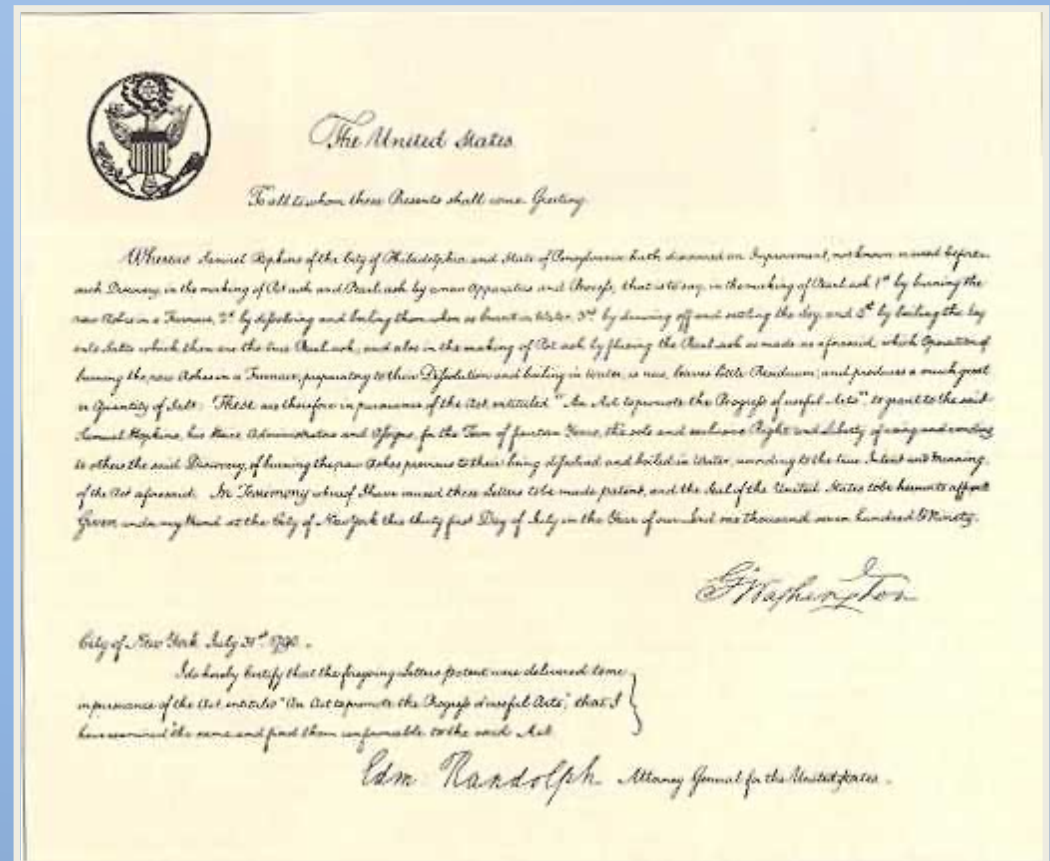 The United States
To all to whom these Presents shall come. Greeting.
Whereas Samuel Hopkins of the City of Philadelphia and State of Pensylvania hath discovered an Improvement, not known or used before
such Discovery, in the making of Pot ash and Pearl ash by a new Apparatus and Process, that is to say, in the making of Pearl ash 1st by burning the
raw Ashes in a Furnace, 2d by dissolving and boiling them when so burnt in Water, 3rd by drawing off and settling the ley, and 4th by boiling the ley
into Salts which then are the true Pearl ash; and also in the making of Pot ash by fluxing the Pearl ash so made as aforesaid; which Operation of
burning the raw Ashes in a Furnace, preparatory to their Dissolution and boiling in Water, is new, leaves little Residuum; and produces a much great
er Quantity of Salt: These are therefore in pursuance of the Act, entituled "An Act to promote the Progress of useful Arts", to grant to the said
Samuel Hopkins, his Heirs, Administrators and Assigns, for the Term of fourteen Years, the sole and exclusive Right and Liberty of using and vending
to others the said Discovery, of burning the raw Ashes previous to their being dissolved and boiled in Water, according to the true Intent and Meaning
of the Act aforesaid. In Testimony whereof I have caused these Letters to be made patent, and the Seal of the United States to be hereunto affixed
Given under my Hand at the City of New York this thirty first Day of July in the Year of our Lord one thousand seven hundred & Ninety.
G Washington
City of New York July 31st 1790.
I do hereby Certify that the foregoing Letters patent were delivered to me
in pursuance of the Act, entituled "An Act to promote the Progress of useful Arts"; that I
have examined the same, and find them conformable to the said Act.
Edm: Randolph Attorney General for the United States.